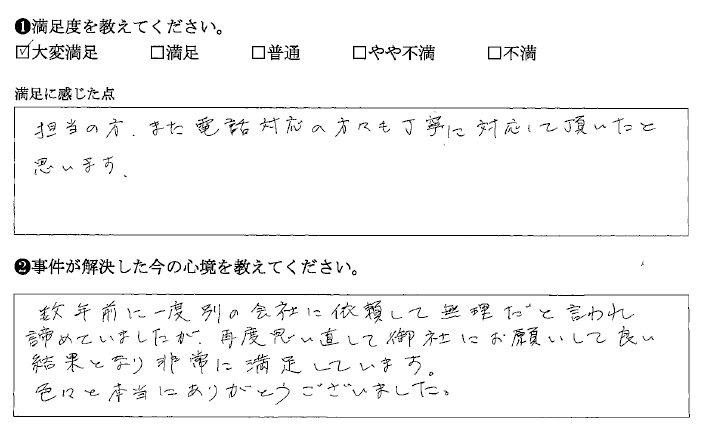 ❶満足度を教えてください。
☑大変満足 □満足 □普通 □やや不満 □不満
満足に感じた点
担当の方、また電話対応の方々も丁寧に対応して頂いたと
思います、
❷事件が解決した今の心境を教えてください。
数年前に一度別の会社に依頼して無理だと言われ
諦めていましたが、再度思い直して御社にお願いして良い
結果となり非常に満足しています。
色々と本当にありがとうございました。